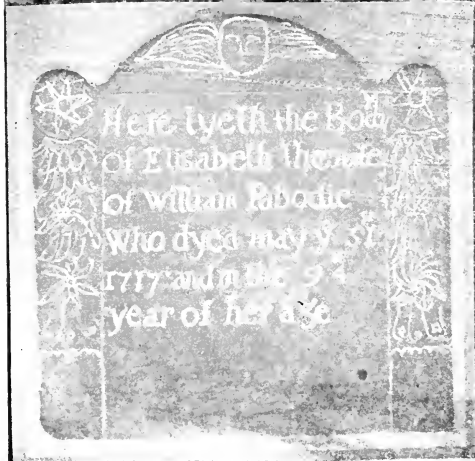 Here Lyeth the Body
of Elisabeth the wife
of william Pabodie
Who dyed may yᵉ 31
1717: and in the 94
year of her age